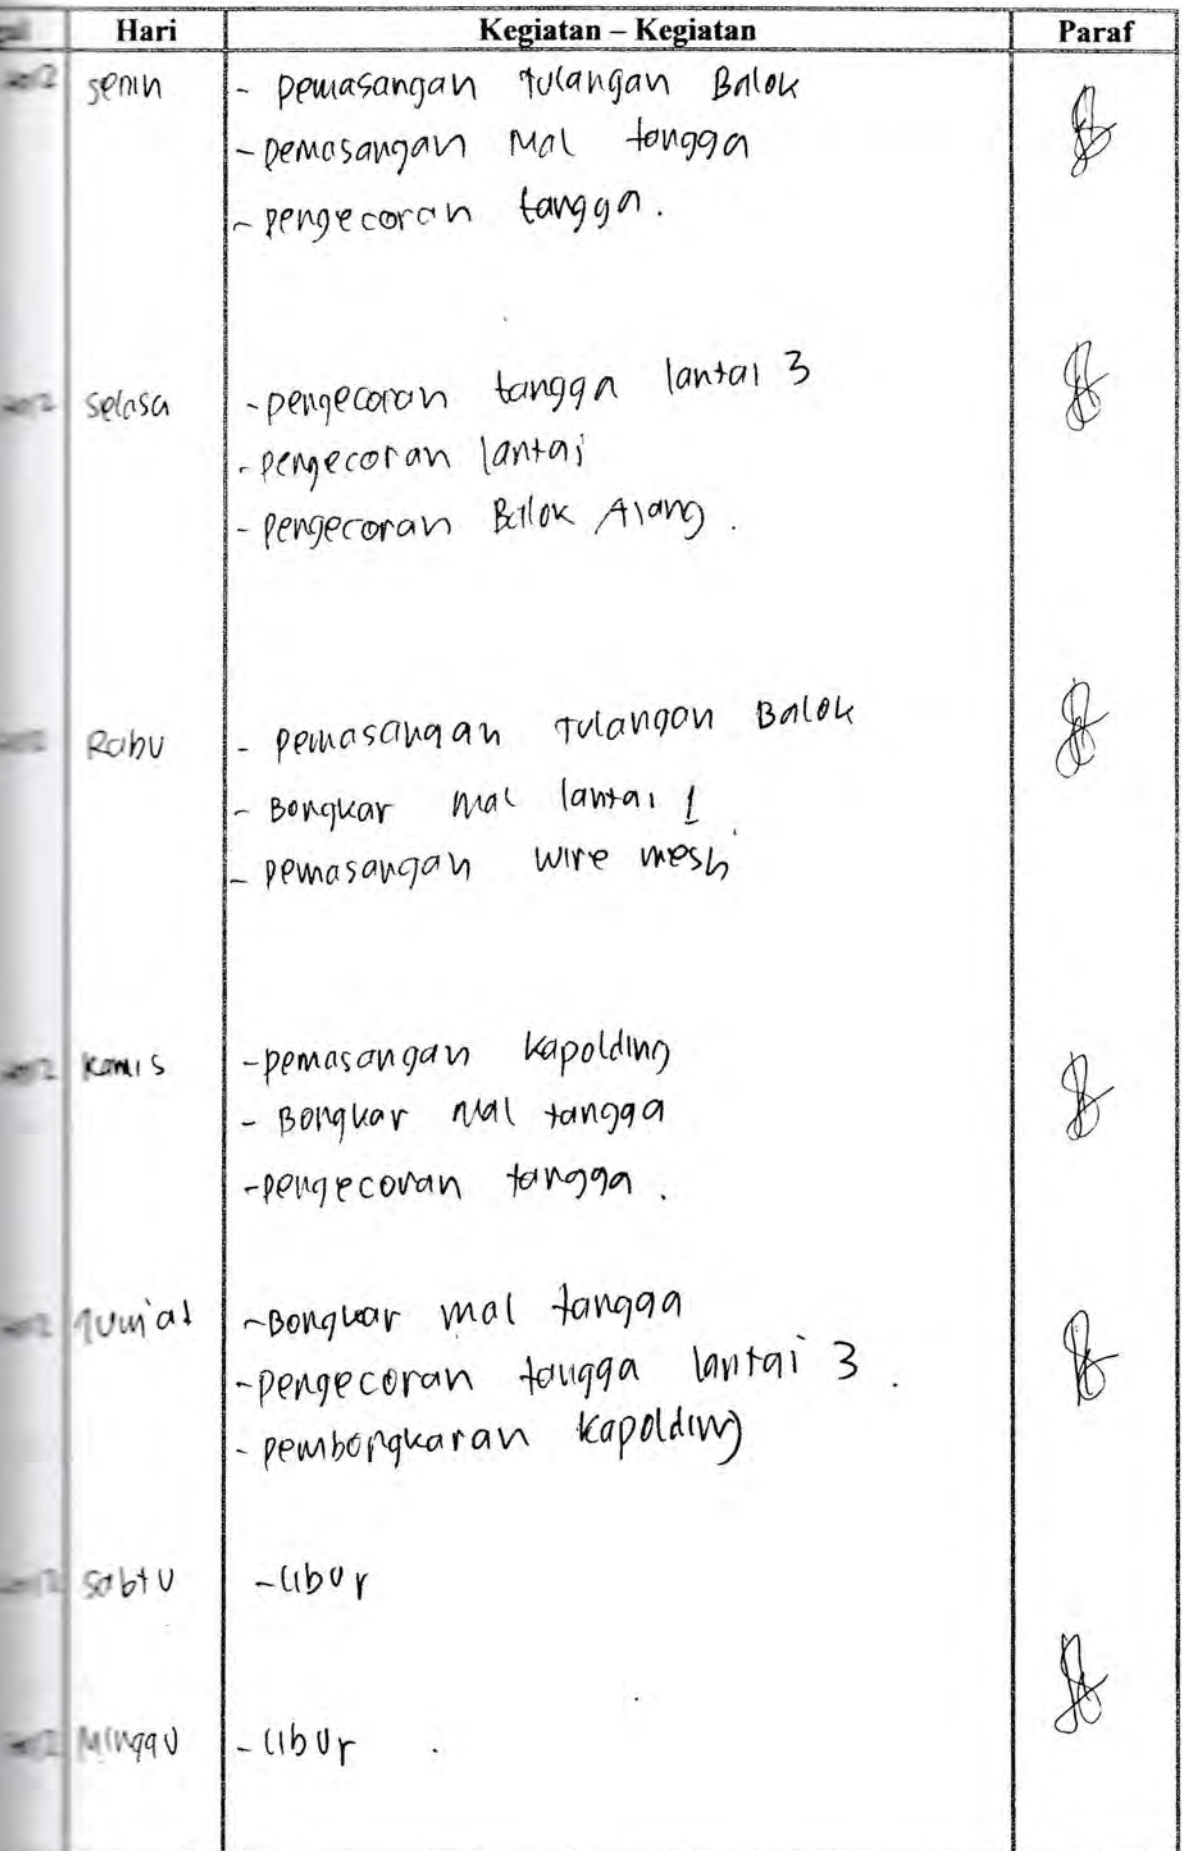 Hari Kegiatan – Kegiatan Paraf
senin - pemasangan Tulangan Balok
- pemasangan Mal tangga
- pengecoran tangga.
selasa - pengecoran tangga lantai 3
- pengecoran lantai
- pengecoran Balok Alang.
Rabu - pemasangan Tulangan Balok
- Bongkar mal lantai 1
- pemasangan wire mesh
kamis - pemasangan kapolding
- Bongkar mal tangga
- pengecoran tangga.
Jum'at - Bongkar mal tangga
- pengecoran tangga lantai 3.
- pembongkaran kapolding
sabtu - libur
Minggu - libur.